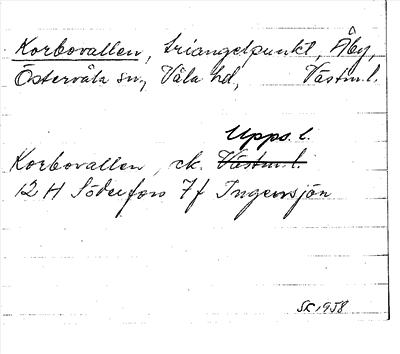 Korbovallen, triangelpunkt, Åby,
Östervåla sn, Våla hd, Västm.l.
Upps. l.
Korbovallen, ek. Västm.l.
12 H Söderfors 7f Ingeressjön
SL 1958